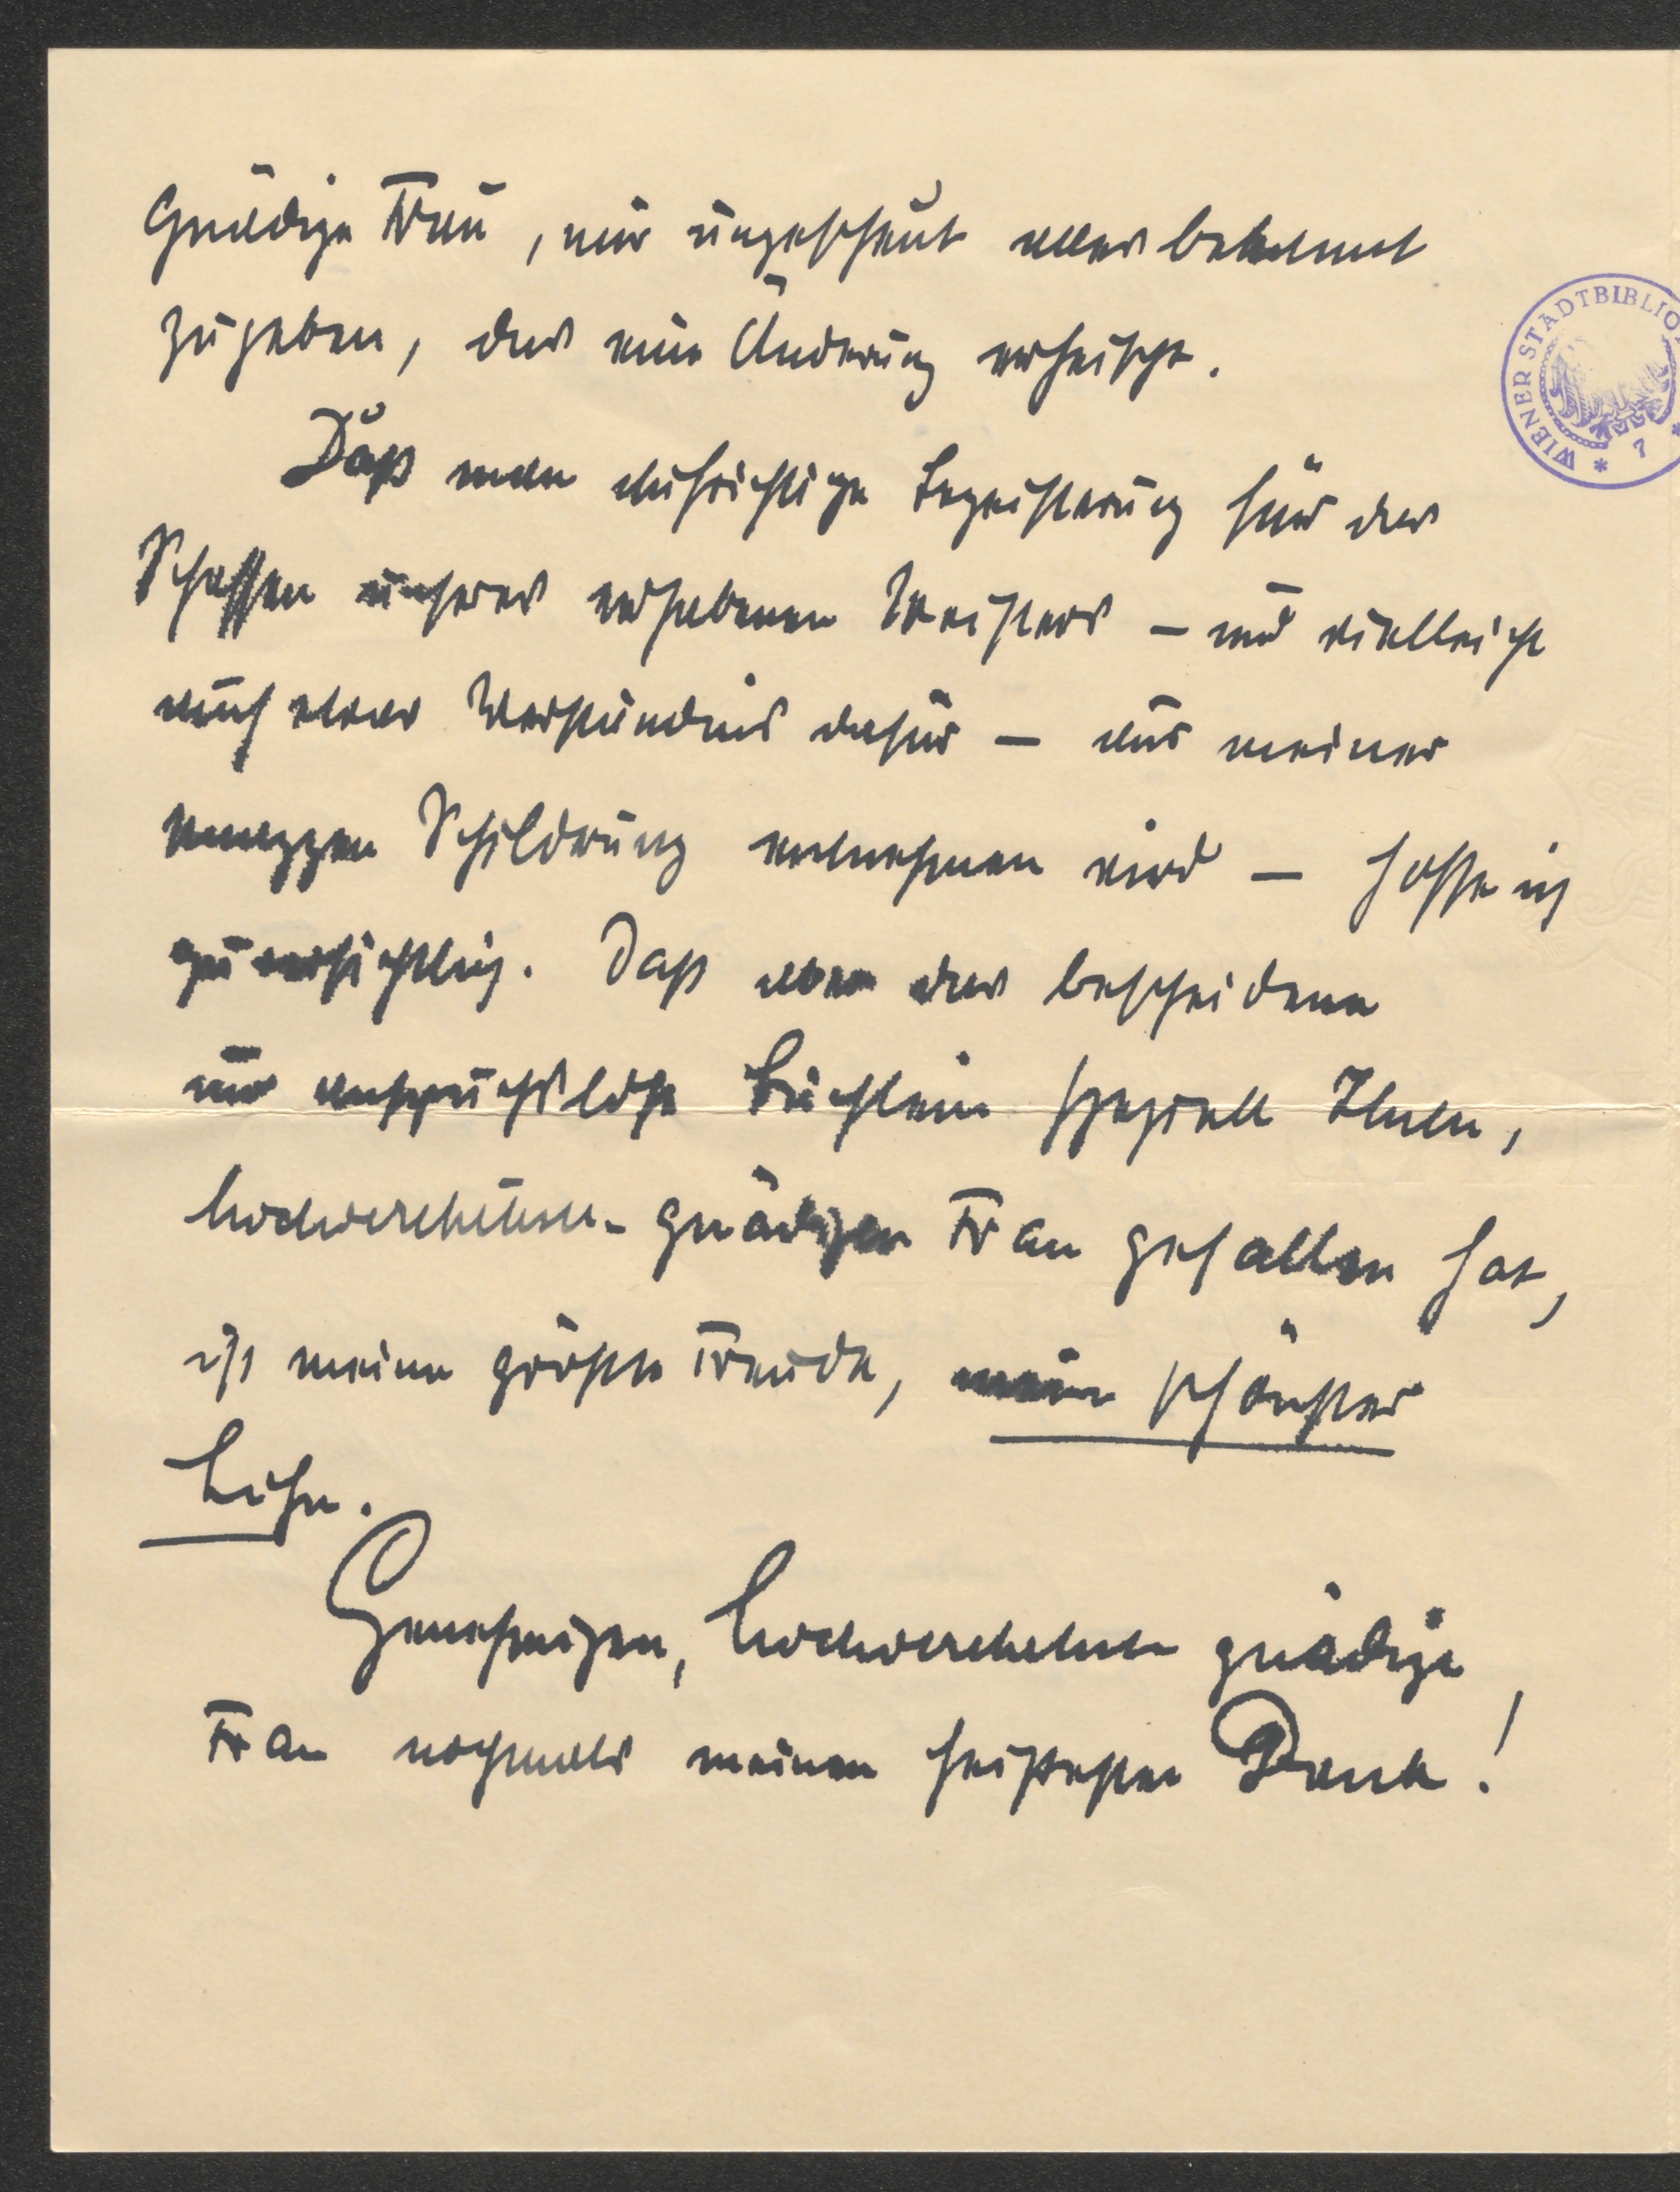 Gnädige Frau, mir ungescheut alles bekannt
zugeben, das eine Änderung erheischt.
Daß man aufrichtige Begeisterung für das
Schaffen unseres erhabenen Meisters – und vielleicht
auch etwas Verständnis dafür – aus meiner
knappen Schilderung entnehmen wird – hoffe ich
zuversichtlich. Daß aber das bescheidene
und anspruchslose Büchlein speziell Ihnen,
hochverehrten gnädigen Frau gefallen hat,
ist meine größte Freude, mein schönster
Lohn.
Genehmigen, hochverehrteste gnädige
Frau nochmals meinen heißesten Dank!
WIENER STADTBIBLIO
* 7 *